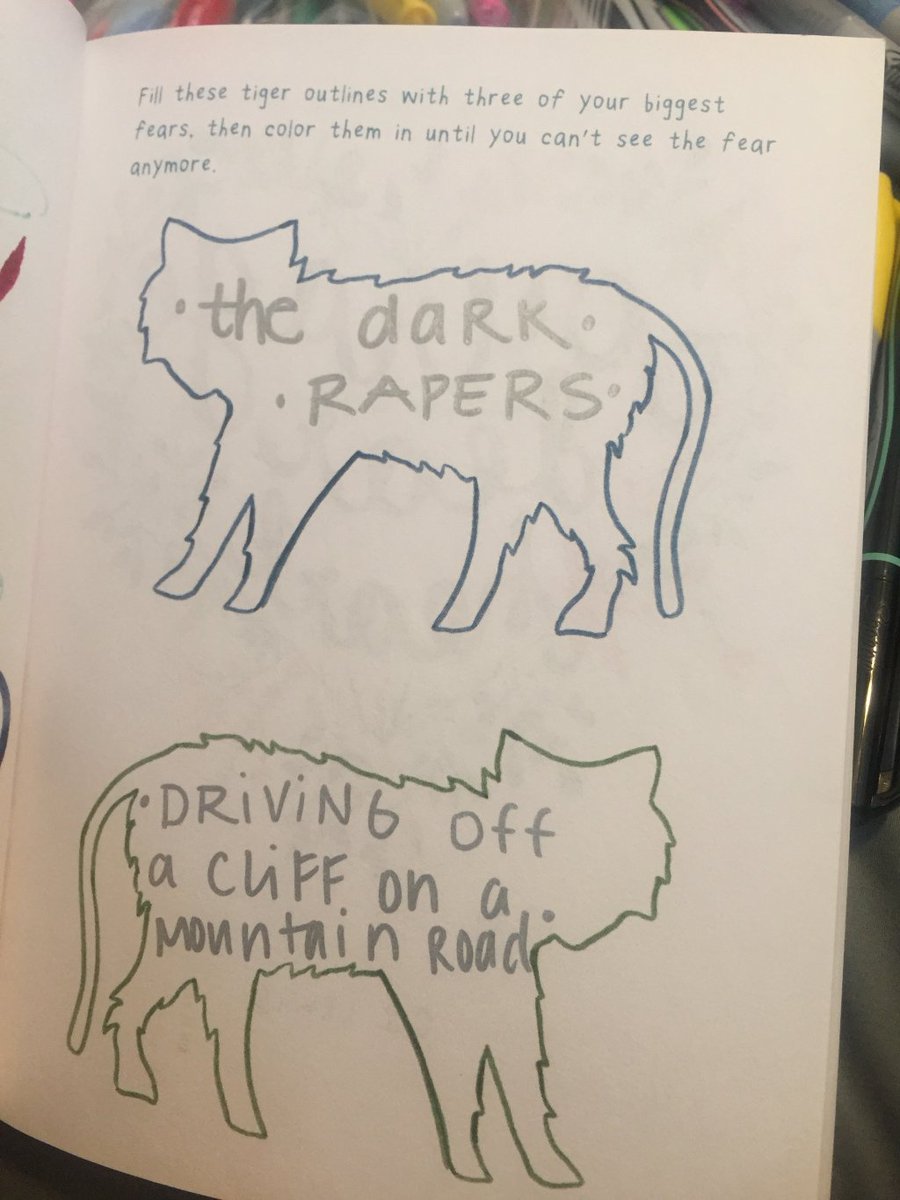 Fill these tiger outlines with three of your biggest
fears, then color them in until you can't see the fear
anymore.
• the daRK •
• RAPERS •
• DRiViNG Off
a CLiFF on a
Mountain Road •